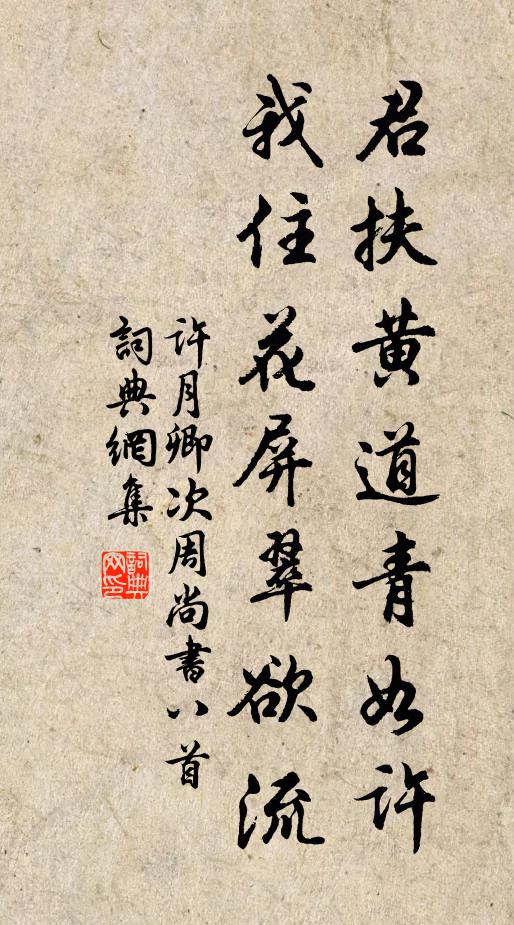 君扶黄道青如許
我住花屏翠欲流
許月卿次周尚書八首
詞典網集
詞典网印